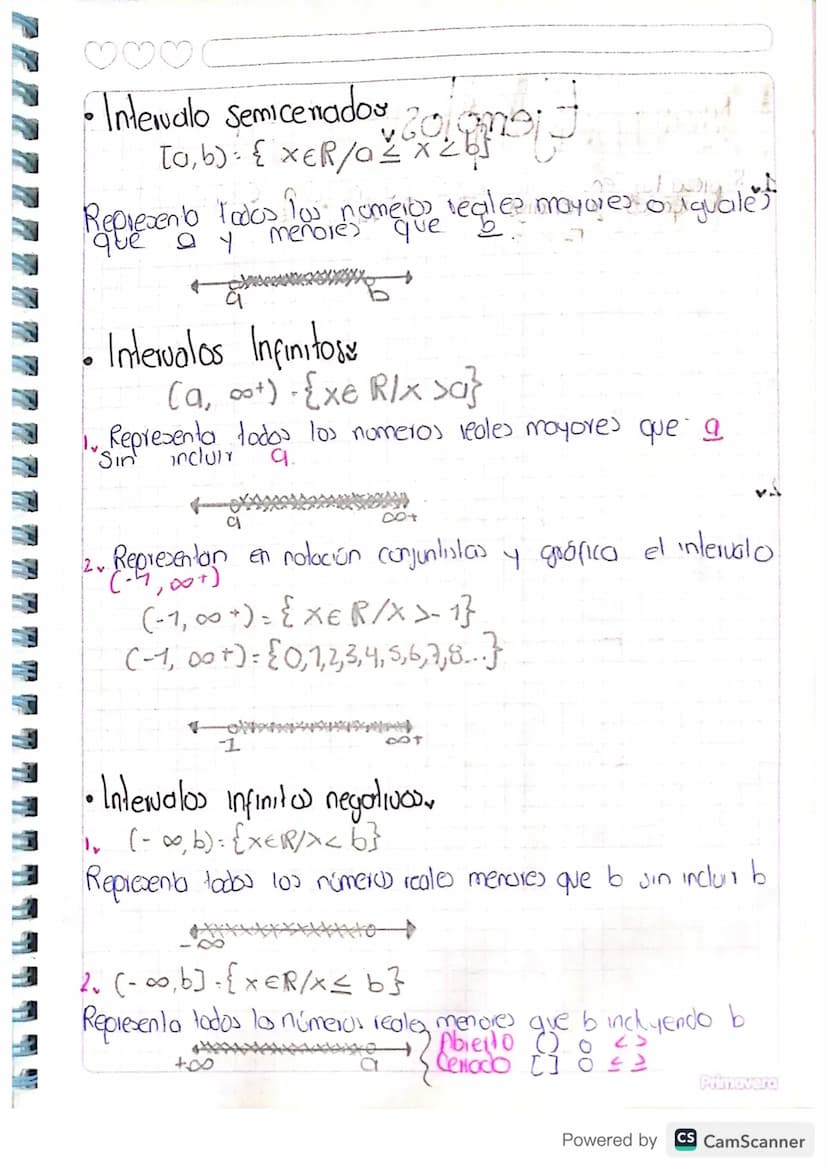 • Intervalo semicerrados
[a,b) = { x∈R/a ≤ x < b}
Representa todos los números reales mayores o iguales
que a y menores que b.
a b
• Intervalos Infinitos
(a, ∞+) = {x∈ R/x >a}
1. Representa todos los numeros reales mayores que a
Sin incluir a.
a ∞+
2. Representan en notación conjuntistas y gráfica el intervalo
(-1, ∞+)
(-1, ∞+) = { x∈ R/x >-1}
(-1, ∞+) = {0,1,2,3,4,5,6,7,8...}
-1 ∞+
• Intervalos infinitos negativos
1. (- ∞,b) = {x∈R/x< b}
Representa todos los números reales menores que b sin incluir b
-∞
2. (- ∞,b] = { x∈R/x≤ b}
Representa todos los números reales menores que b incluyendo b
+∞ a
Abierto () o < >
Cerrado [ ] o ≤ ≥
Primavera
Powered by CS CamScanner